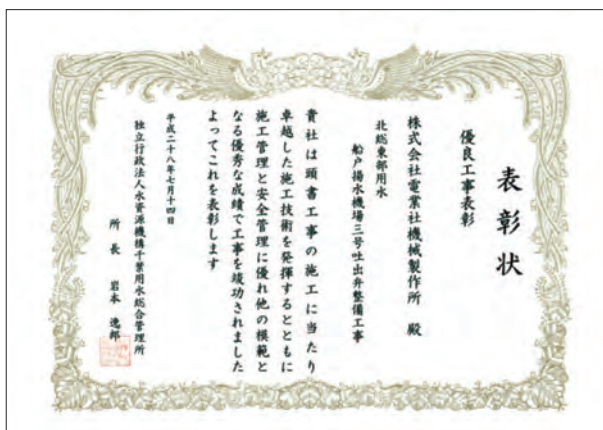 表彰状
優良工事表彰
株式会社電業社機械製作所 殿
北総東部用水
船戸揚水機場三号吐出弁整備工事
貴社は頭書工事の施工に当たり
卓越した施工技術を発揮するとともに
施工管理と安全管理に優れ他の模範と
なる優秀な成績で工事を竣功されました
よってこれを表彰します
平成二十八年七月十四日
独立行政法人水資源機構千葉用水総合管理所
所長 岩本 逸郎